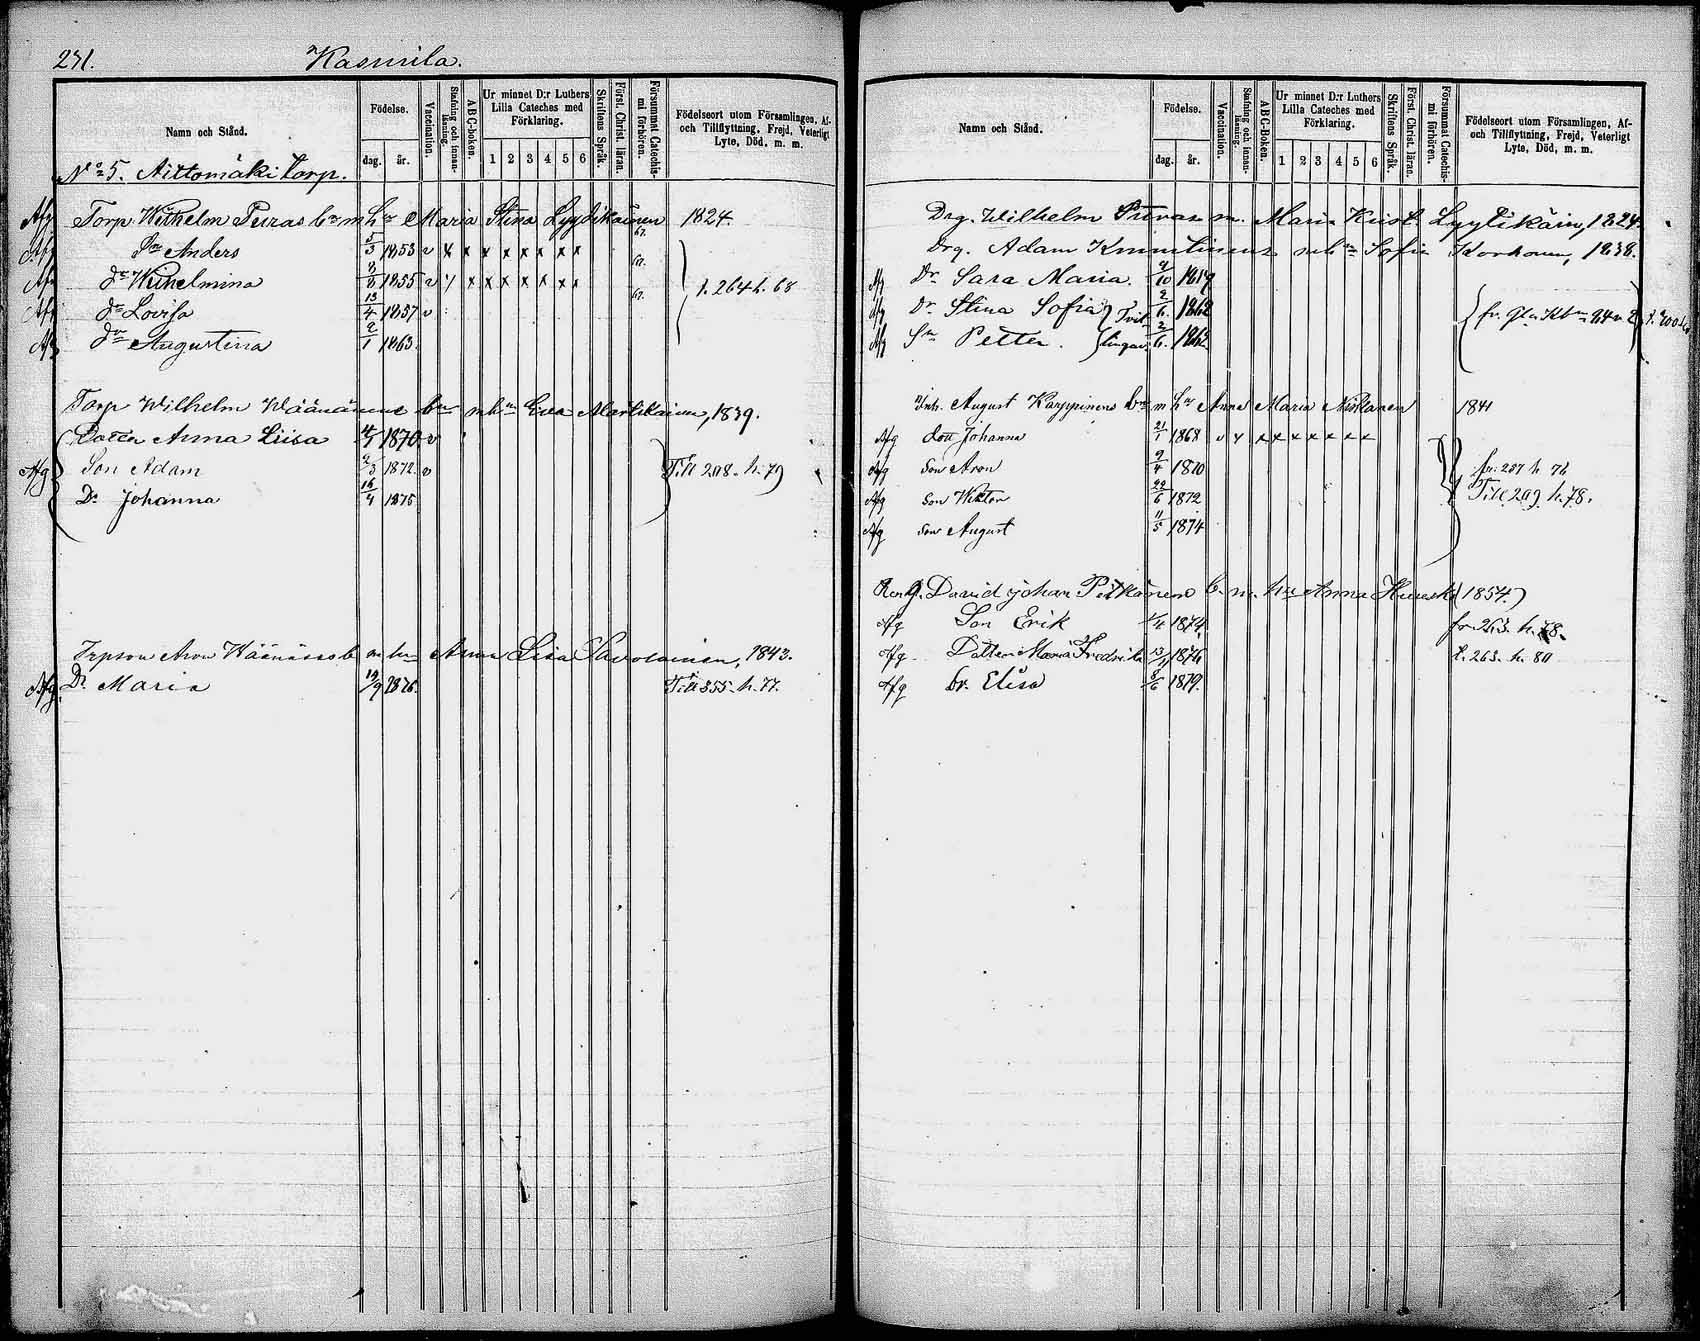 231. Kasurila.
Namn och Stånd.
Födelse.
dag. år.
Vaccination.
Stafning och innan-läsning.
ABC-boken.
Ur minnet D:r Luthers Lilla Cateches med Förklaring.
1 2 3 4 5 6
Skriftens Språk.
Först. Christ. läran.
Försummat Catechis-mi förhören.
Födelseort utom Församlingen, Af- och Tillflyttning, Frejd, Veterligt Lyte, Död, m. m.
No 5. Aittomäki torp.
Afg Torp Wilhelm Puras bn m hu Maria Stina Lyytikäinen 1824.
Afg Sn Anders 5/3 1853 v x x x x x x x x 67.
Afg Dr Wilhelmina 8/8 1855 v x x x x x x x x 67.
Afg Dr Lovisa 13/4 1857 v 67.
t. 264 h. 68
Afg Dr Augustina 2/1 1863.
Torp Wilhelm Wäänänens bn m hu Eva Martikainen, 1839.
Dotter Anna Liisa 1870 v
Afg Son Adam 2/3 1872. v Till 208. h. 79
Dr Johanna 16/4 1875
Trpson Aron Wäänänens b m hu Anna Lisa Savolainen, 1843.
Afg Dr Maria 19/9 1876. Till 355. h. 77.
Namn och Stånd.
Födelse.
dag. år.
Vaccination.
Stafning och innan-läsning.
ABC-Boken.
Ur minnet D:r Luthers Lilla Cateches med Förklaring.
1 2 3 4 5 6
Skriftens Språk.
Först. Christ. läran.
Försummat Catechis-mi förhören.
Födelseort utom Församlingen, Af- och Tillflyttning, Frejd, Veterligt Lyte, Död, m. m.
Drg. Wilhelm Puras m. Maria Krist. Lyytikäin, 1824.
Drg. Adam m hu Sofia Korhonen, 1838.
Afg Dr Sara Maria. 9/10 1859
Afg Dr Stina Sofia 2/6. 1862
Tvil-lingar.
Afg Sn Petter. 2/6. 1862
Inh. August Karppinens bn m hu Anna Maria Miskanen 1841
Afg Dott Johanna 21/1 1868 v x x x x x x x x
Afg Son Aron 9/4 1870 fr. 257 h 76
Afg Son Wiktor 22/6 1872 Till 209 h. 78.
Afg Son August 11/5 1874
David Johan Pitkänens b. m. hu Anna (1854.)
Afg Son Erik 1/4 1874. fr. 263. h. 78.
Afg. Dotter Maria Fredrika 13/1 1876 t. 263. h. 80
Afg Dr. Elisa 8/6 1879.